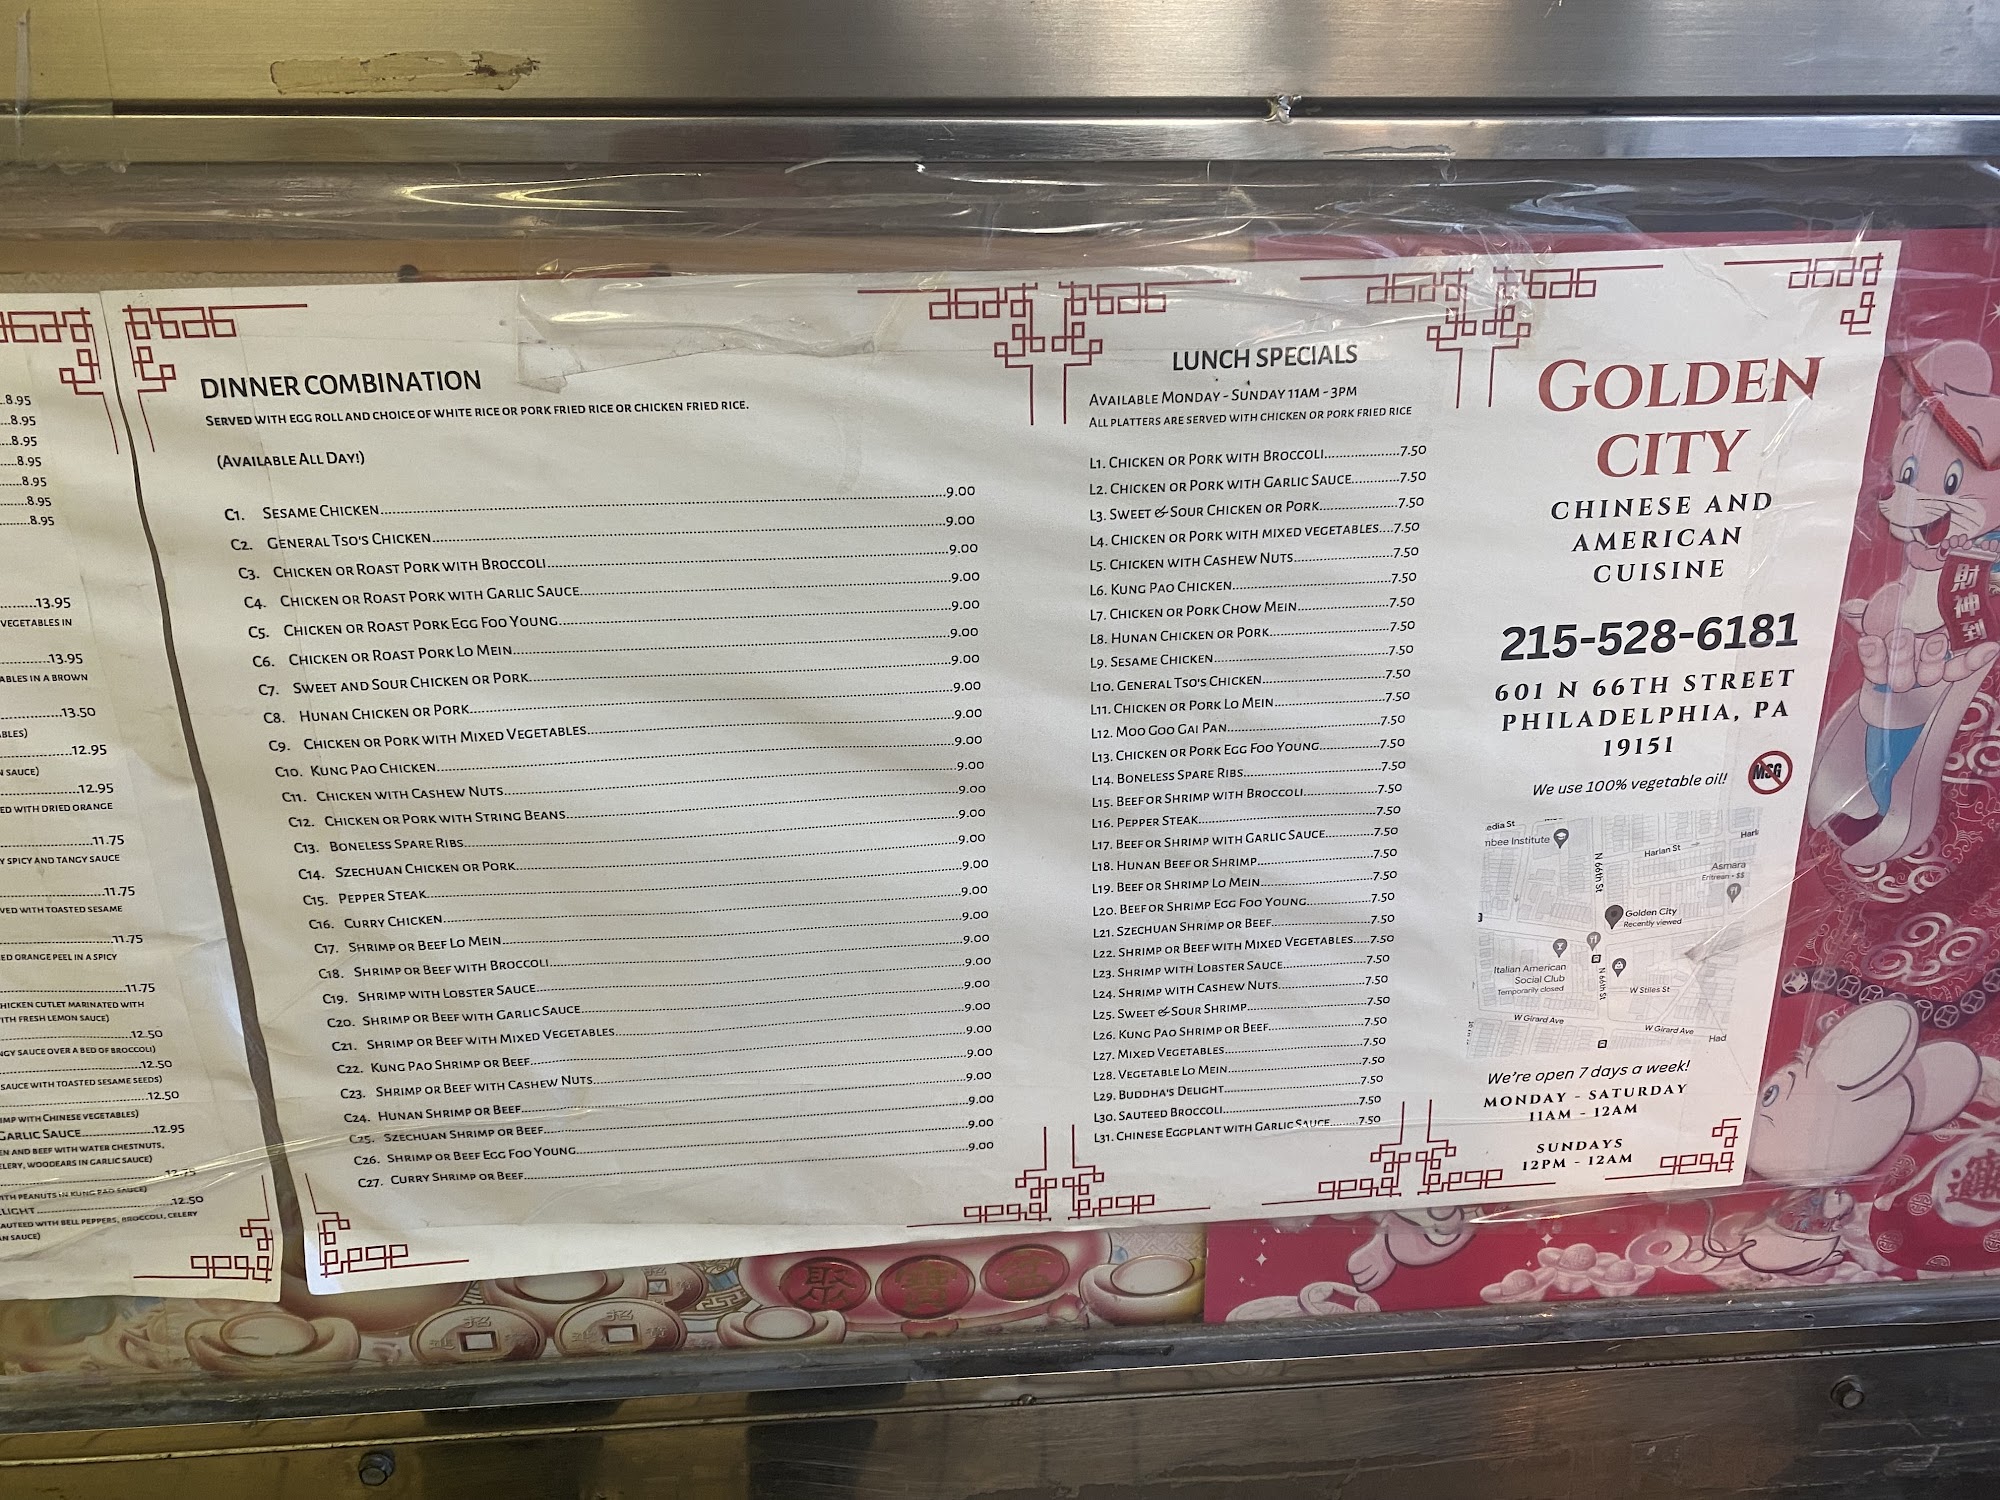 ..8.95
...8.95
...8.95
....8.95
.....8.95
......8.95
......8.95
........13.95
VEGETABLES IN
.........13.95
ABLES IN A BROWN
...........13.50
BLES)
..............12.95
N SAUCE)
..............12.95
ED WITH DRIED ORANGE
..............11.75
Y SPICY AND TANGY SAUCE
..............11.75
VED WITH TOASTED SESAME
..............11.75
ED ORANGE PEEL IN A SPICY
..............11.75
HICKEN CUTLET MARINATED WITH
ITH FRESH LEMON SAUCE)
..............12.50
NGY SAUCE OVER A BED OF BROCCOLI)
..............12.50
SAUCE WITH TOASTED SESAME SEEDS)
..............12.50
IMP WITH CHINESE VEGETABLES)
GARLIC SAUCE..............12.95
EN AND BEEF WITH WATER CHESTNUTS,
ELERY, WOODEARS IN GARLIC SAUCE)
..............12.75
ITH PEANUTS IN KUNG PAO SAUCE)
LIGHT..............12.50
AUTEED WITH BELL PEPPERS, BROCCOLI, CELERY
AN SAUCE)
DINNER COMBINATION
SERVED WITH EGG ROLL AND CHOICE OF WHITE RICE OR PORK FRIED RICE OR CHICKEN FRIED RICE.
(AVAILABLE ALL DAY!)
C1. SESAME CHICKEN..............9.00
C2. GENERAL TSO'S CHICKEN..............9.00
C3. CHICKEN OR ROAST PORK WITH BROCCOLI..............9.00
C4. CHICKEN OR ROAST PORK WITH GARLIC SAUCE..............9.00
C5. CHICKEN OR ROAST PORK EGG FOO YOUNG..............9.00
C6. CHICKEN OR ROAST PORK LO MEIN..............9.00
C7. SWEET AND SOUR CHICKEN OR PORK..............9.00
C8. HUNAN CHICKEN OR PORK..............9.00
C9. CHICKEN OR PORK WITH MIXED VEGETABLES..............9.00
C10. KUNG PAO CHICKEN..............9.00
C11. CHICKEN WITH CASHEW NUTS..............9.00
C12. CHICKEN OR PORK WITH STRING BEANS..............9.00
C13. BONELESS SPARE RIBS..............9.00
C14. SZECHUAN CHICKEN OR PORK..............9.00
C15. PEPPER STEAK..............9.00
C16. CURRY CHICKEN..............9.00
C17. SHRIMP OR BEEF LO MEIN..............9.00
C18. SHRIMP OR BEEF WITH BROCCOLI..............9.00
C19. SHRIMP WITH LOBSTER SAUCE..............9.00
C20. SHRIMP OR BEEF WITH GARLIC SAUCE..............9.00
C21. SHRIMP OR BEEF WITH MIXED VEGETABLES..............9.00
C22. KUNG PAO SHRIMP OR BEEF..............9.00
C23. SHRIMP OR BEEF WITH CASHEW NUTS..............9.00
C24. HUNAN SHRIMP OR BEEF..............9.00
C25. SZECHUAN SHRIMP OR BEEF..............9.00
C26. SHRIMP OR BEEF EGG FOO YOUNG..............9.00
C27. CURRY SHRIMP OR BEEF..............9.00
LUNCH SPECIALS
AVAILABLE MONDAY - SUNDAY 11AM - 3PM
ALL PLATTERS ARE SERVED WITH CHICKEN OR PORK FRIED RICE
L1. CHICKEN OR PORK WITH BROCCOLI..............7.50
L2. CHICKEN OR PORK WITH GARLIC SAUCE............7.50
L3. SWEET & SOUR CHICKEN OR PORK..............7.50
L4. CHICKEN OR PORK WITH MIXED VEGETABLES....7.50
L5. CHICKEN WITH CASHEW NUTS..............7.50
L6. KUNG PAO CHICKEN..............7.50
L7. CHICKEN OR PORK CHOW MEIN..............7.50
L8. HUNAN CHICKEN OR PORK..............7.50
L9. SESAME CHICKEN..............7.50
L10. GENERAL TSO'S CHICKEN..............7.50
L11. CHICKEN OR PORK LO MEIN..............7.50
L12. MOO GOO GAI PAN..............7.50
L13. CHICKEN OR PORK EGG FOO YOUNG..............7.50
L14. BONELESS SPARE RIBS..............7.50
L15. BEEF OR SHRIMP WITH BROCCOLI..............7.50
L16. PEPPER STEAK..............7.50
L17. BEEF OR SHRIMP WITH GARLIC SAUCE............7.50
L18. HUNAN BEEF OR SHRIMP..............7.50
L19. BEEF OR SHRIMP LO MEIN..............7.50
L20. BEEF OR SHRIMP EGG FOO YOUNG..............7.50
L21. SZECHUAN SHRIMP OR BEEF..............7.50
L22. SHRIMP OR BEEF WITH MIXED VEGETABLES.....7.50
L23. SHRIMP WITH LOBSTER SAUCE..............7.50
L24. SHRIMP WITH CASHEW NUTS..............7.50
L25. SWEET & SOUR SHRIMP..............7.50
L26. KUNG PAO SHRIMP OR BEEF..............7.50
L27. MIXED VEGETABLES..............7.50
L28. VEGETABLE LO MEIN..............7.50
L29. BUDDHA'S DELIGHT..............7.50
L30. SAUTEED BROCCOLI..............7.50
L31. CHINESE EGGPLANT WITH GARLIC SAUCE........7.50
GOLDEN
CITY
CHINESE AND
AMERICAN
CUISINE
215-528-6181
601 N 66TH STREET
PHILADELPHIA, PA
19151
We use 100% vegetable oil!
MSG
edia St
mbee Institute
N 66th St
Harlan St
Harl
Asmara
Eritrean • $$
Golden City
Recently viewed
Italian American
Social Club
Temporarily closed
N 66th St
W Stiles St
W Girard Ave
W Girard Ave
Had
We're open 7 days a week!
MONDAY - SATURDAY
11AM - 12AM
SUNDAYS
12PM - 12AM
財神到
聚
寶
招
招